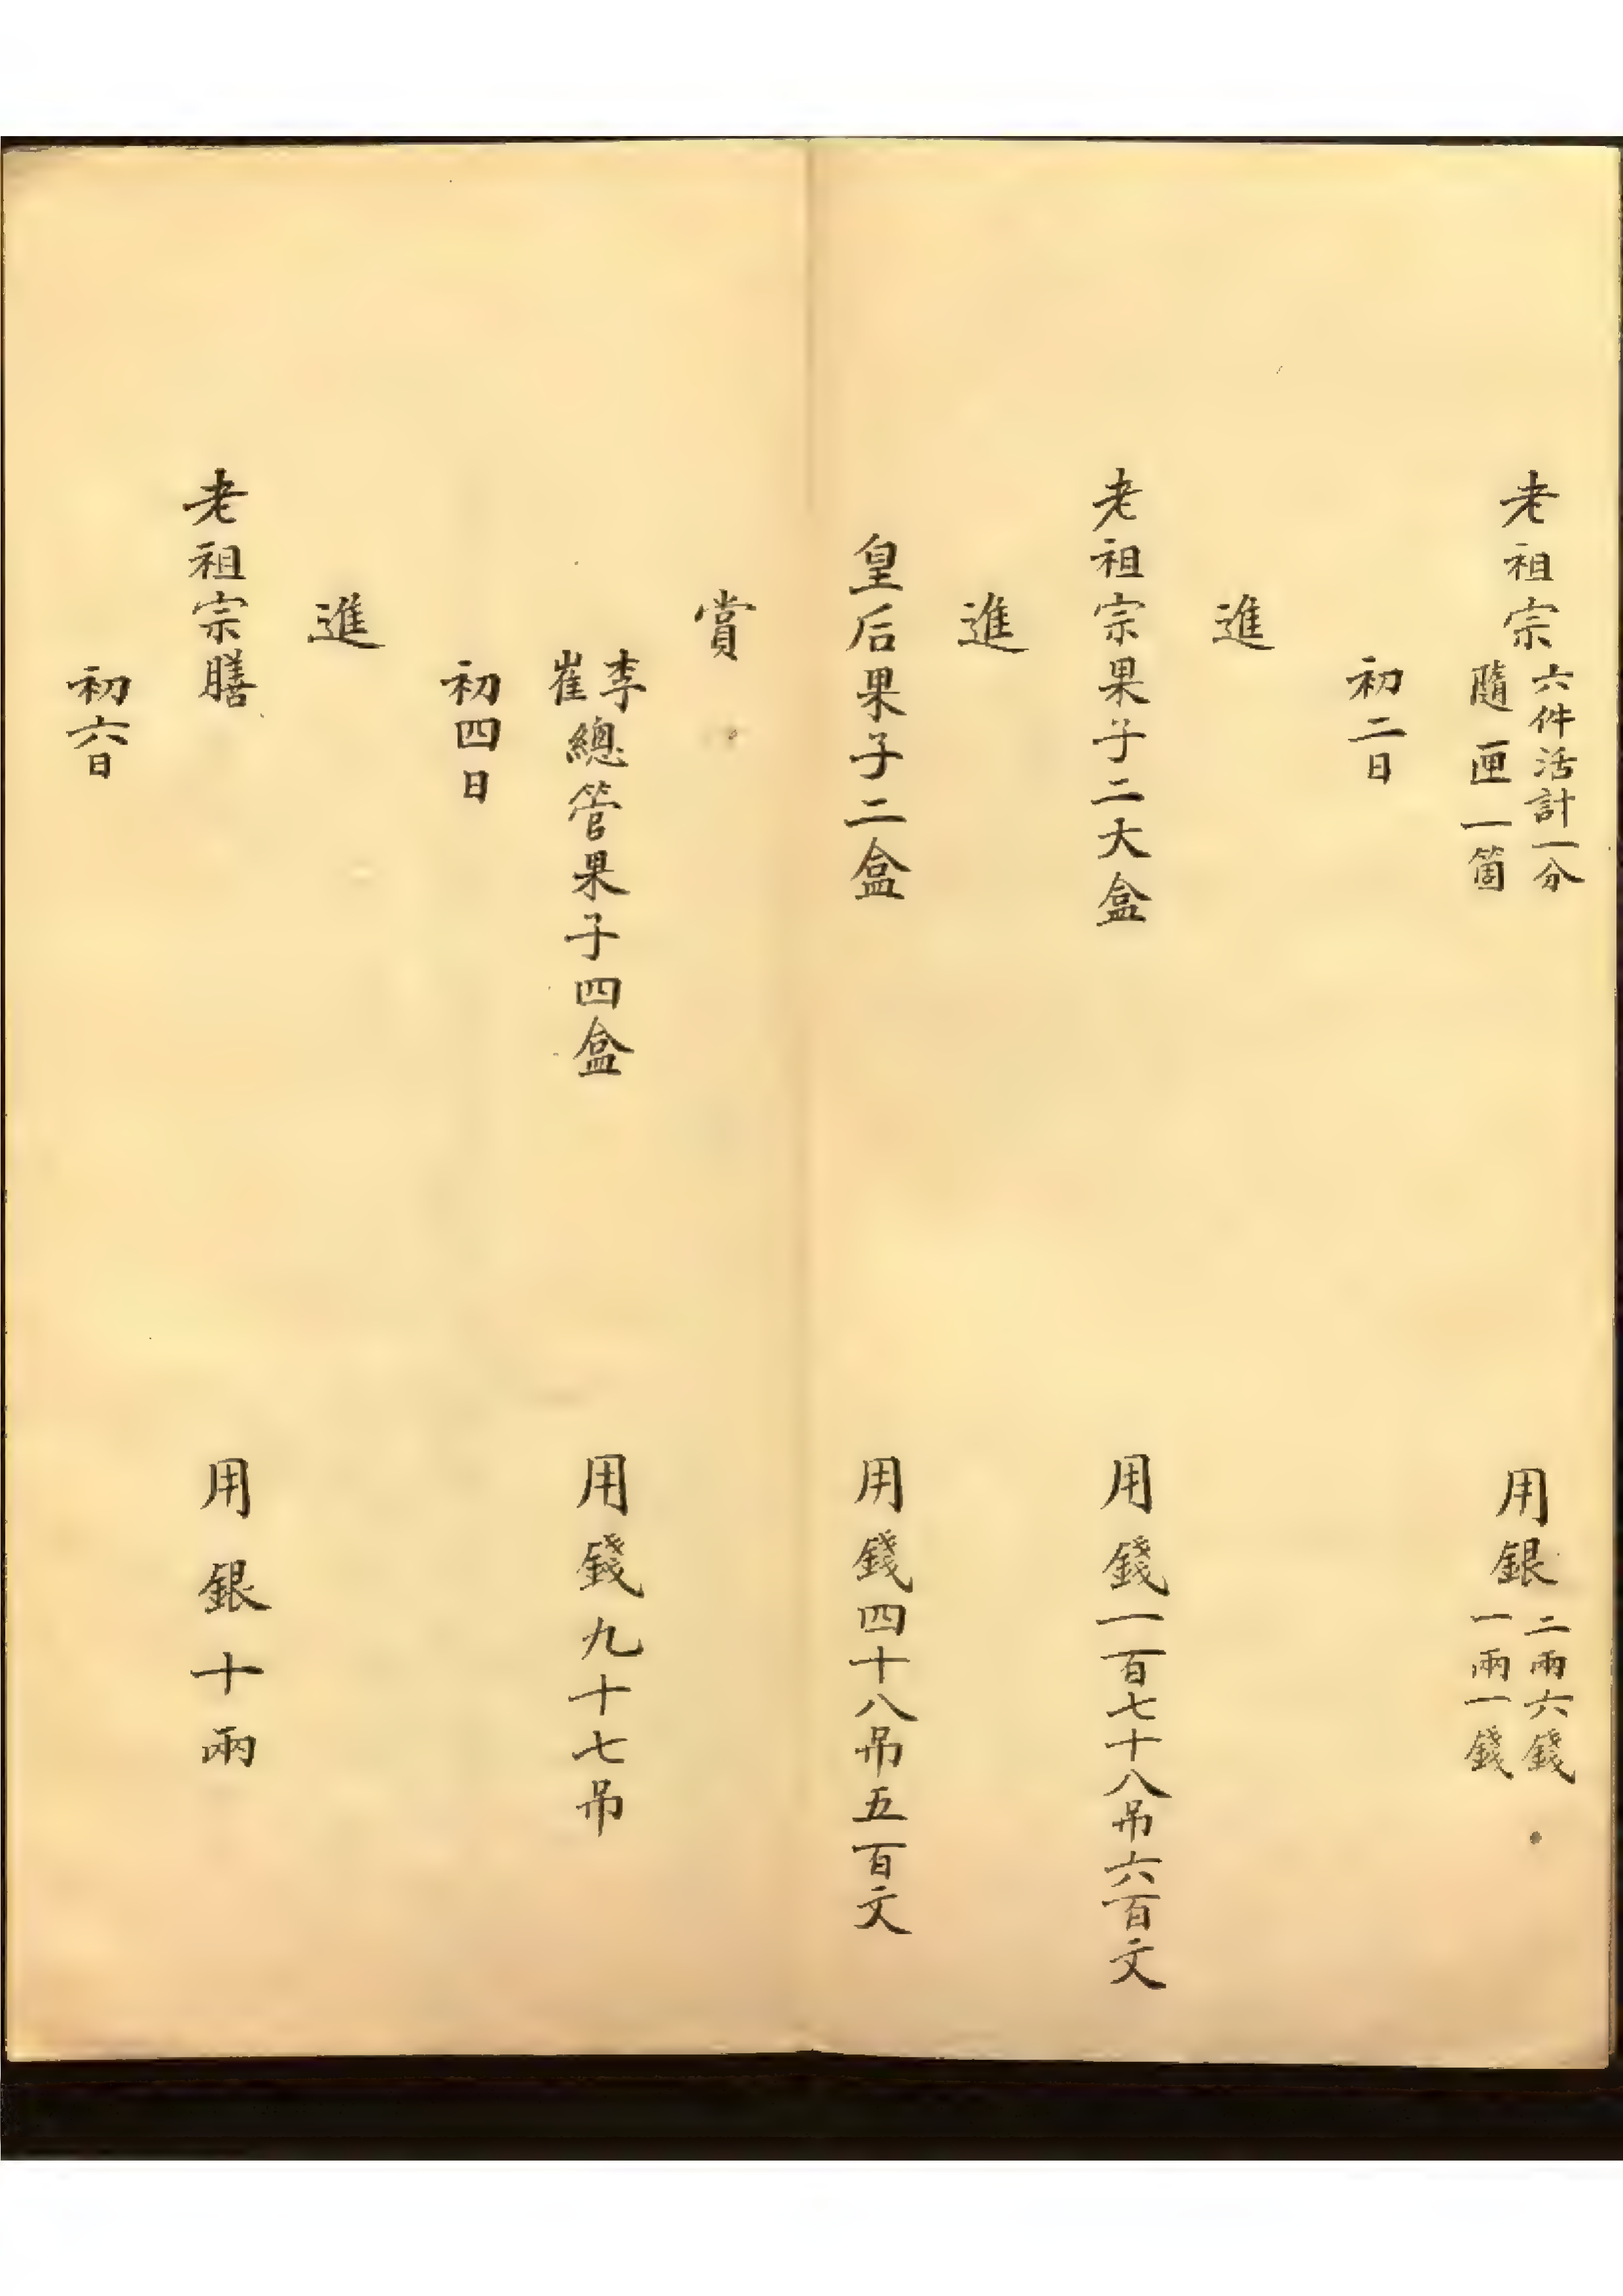 老祖宗六件活計一分
隨匣一箇
用銀二兩六錢
一兩一錢
初二日
進
老祖宗果子二大盒
用錢一百七十八吊六百文
進
皇后果子二盒
用錢四十八吊五百文
賞
李
崔總管果子四盒
用錢九十七吊
初四日
進
老祖宗膳
用銀十兩
初六日